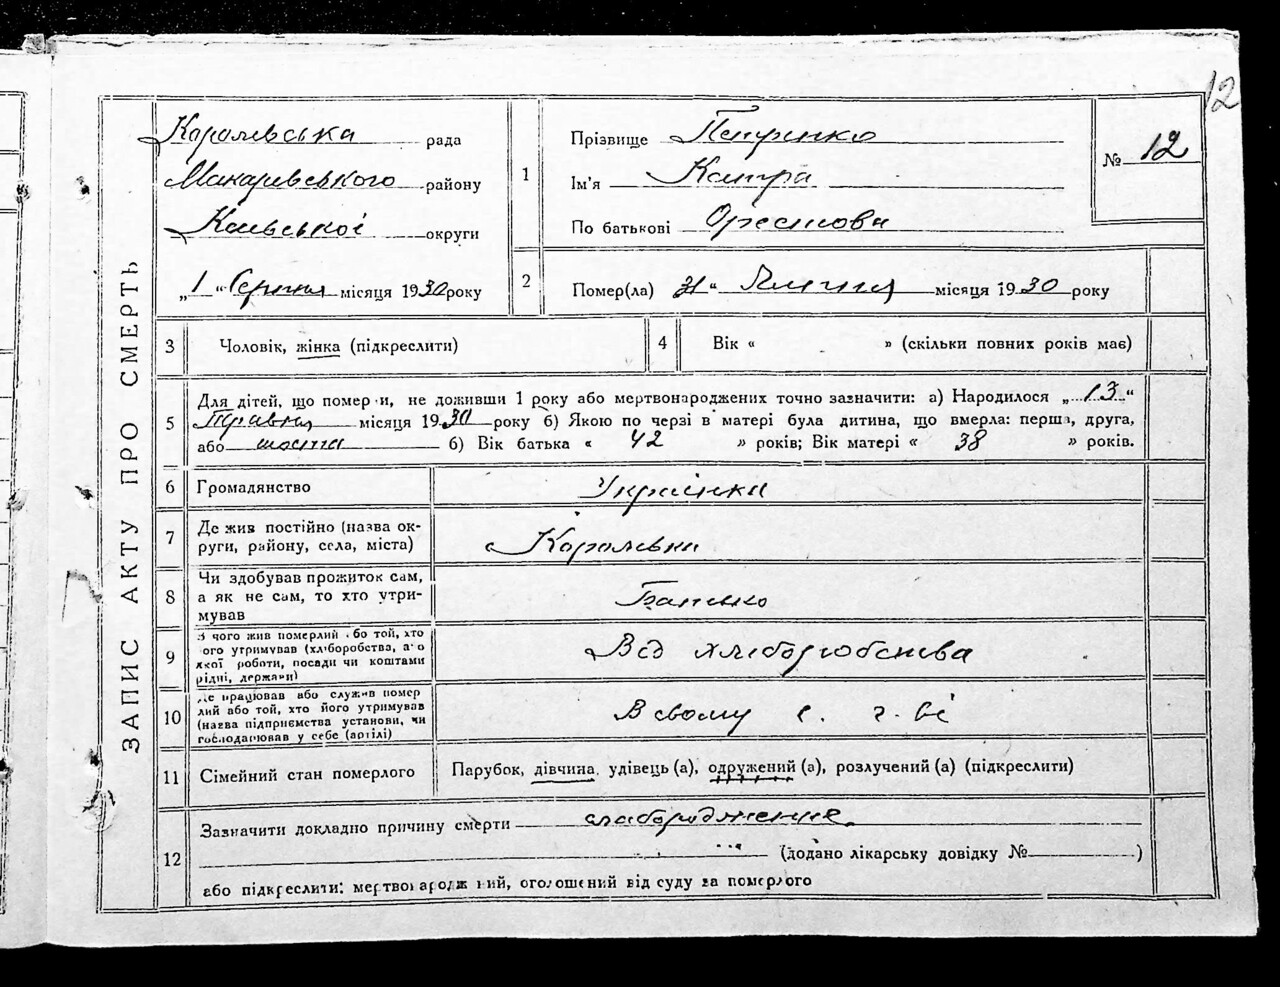 12
ЗАПИС АКТУ ПРО СМЕРТЬ
Королівська рада
Макарівського району
Київської округи
„1“ Серпня місяця 1930 року
1
Прізвище Петренко
Ім'я
По батькові Орестова
№ 12
2
Помер(ла) 31 “ Липня місяця 1930 року
3 Чоловік, жінка (підкреслити)
4 Вік « » (скільки повних років має)
5
Для дітей, що померли, не доживши 1 року або мертвонароджених точно зазначити: а) Народилося „13“
Травня місяця 1930 року б) Якою по черзі в матері була дитина, що вмерла: перша, друга,
або шоста б) Вік батька « 42 » років; Вік матері « 38 » років.
6 Громадянство Українка
7
Де жив постійно (назва ок-
руги, району, села, міста) Королівка
8
Чи здобував прожиток сам,
а як не сам, то хто утри-
мував Батько
9
З чого жив померлий або той, хто
ого утримував (хліборобства, або
якої роботи, посади чи коштами
рідні, держави) Від хліборобства
10
Де працював або служив помер
лий або той, хто його утримував
(назва підприємства установи, чи
господарював у себе (артілі) В свому с. г. ві
11 Сімейний стан померлого Парубок, дівчина, удівець (а), одружений (а), розлучений (а) (підкреслити)
12
Зазначити докладно причину смерти слабородження
(додано лікарську довідку № )
або підкреслити: мертвонароджений, оголошений від суду за померлого